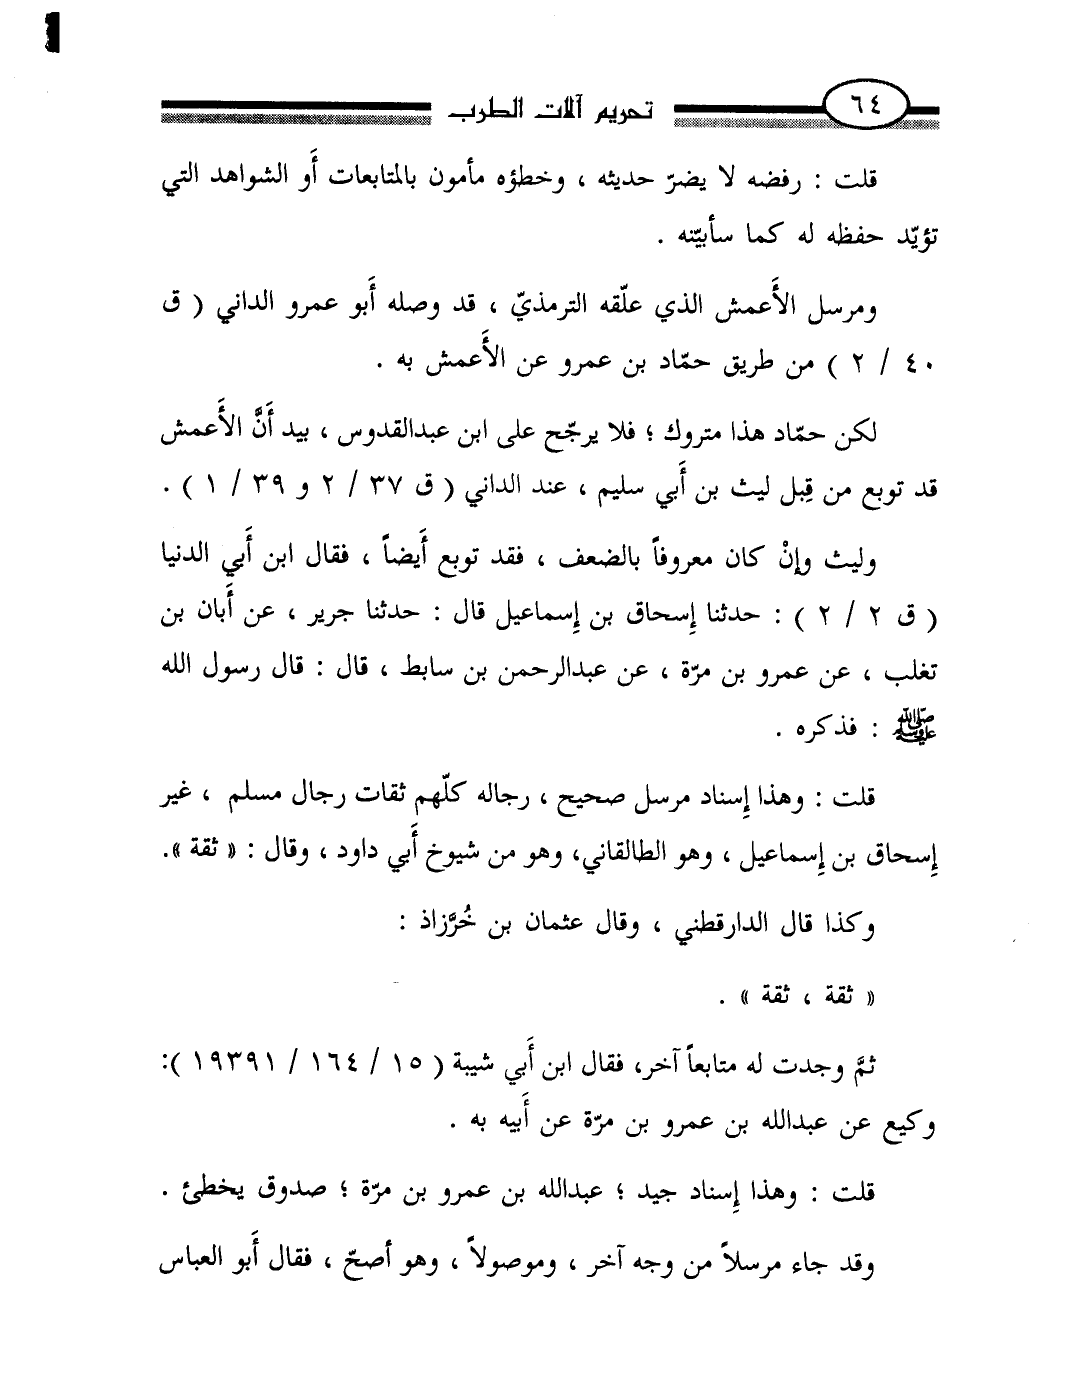 ٦٤
تحريم آلات الطرب
قلت : رفضه لا يضرّ حديثه ، وخطؤه مأمون بالمتابعات أَو الشواهد التي
تؤيّد حفظه له كما سأبيّنه .
ومرسل الأَعمش الذي علّقه الترمذيّ ، قد وصله أَبو عمرو الداني ( ق
٤٠ / ٢ ) من طريق حمّاد بن عمرو عن الأَعمش به .
لكن حمّاد هذا متروك ؛ فلا يرجّح على ابن عبدالقدوس ، بيد أَنَّ الأَعمش
قد توبع من قِبل ليث بن أَبي سليم ، عند الداني ( ق ٣٧ / ٢ و ٣٩ / ١ ) .
وليث وإنْ كان معروفاً بالضعف ، فقد توبع أَيضاً ، فقال ابن أَبي الدنيا
( ق ٢ / ٢ ) : حدثنا إِسحاق بن إِسماعيل قال : حدثنا جرير ، عن أَبان بن
تغلب ، عن عمرو بن مرّة ، عن عبدالرحمن بن سابط ، قال : قال رسول الله
ﷺ : فذكره .
قلت : وهذا إِسناد مرسل صحيح ، رجاله كلّهم ثقات رجال مسلم ، غير
إِسحاق بن إِسماعيل ، وهو الطالقاني، وهو من شيوخ أَبي داود ، وقال : « ثقة ».
وكذا قال الدارقطني ، وقال عثمان بن خُرَّزاذ :
« ثقة ، ثقة » .
ثمَّ وجدت له متابعاً آخر، فقال ابن أَبي شيبة ( ١٥ / ١٦٤ / ١٩٣٩١ ):
وكيع عن عبدالله بن عمرو بن مرّة عن أَبيه به .
قلت : وهذا إِسناد جيد ؛ عبدالله بن عمرو بن مرّة ؛ صدوق يخطئ .
وقد جاء مرسلاً من وجه آخر ، وموصولاً ، وهو أصحّ ، فقال أَبو العباس